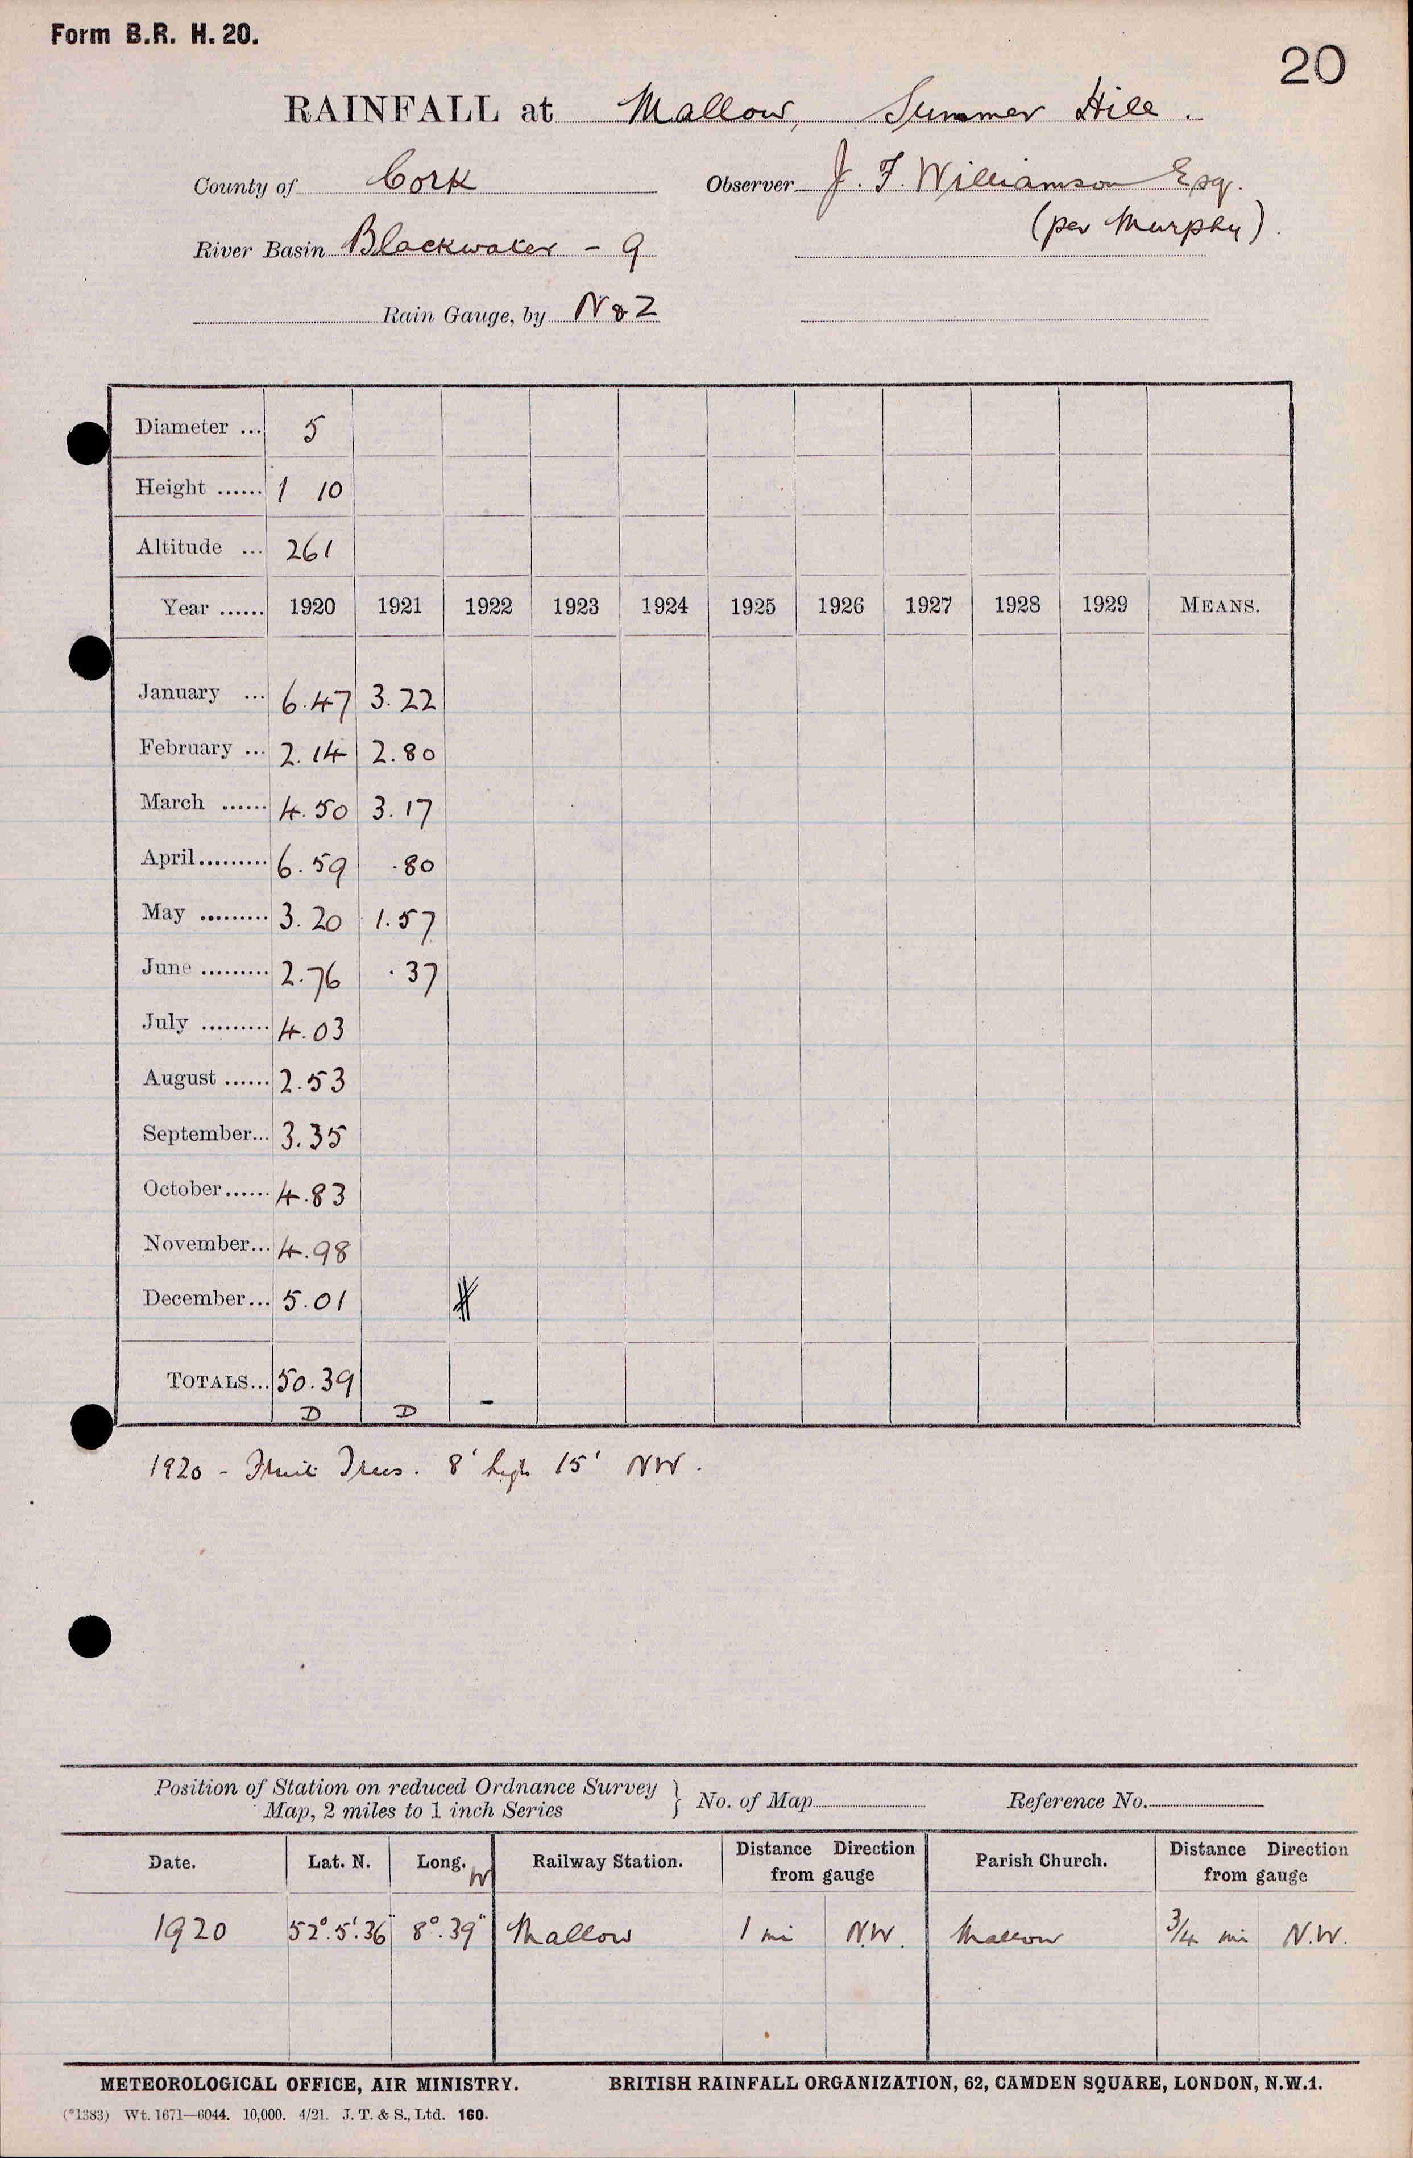 Form B.R. H. 20.
20
RAINFALL at Mallow, Summer Hill.
County of Cork Observer J. F. Williamson Esq.
(per Murphy).
River Basin Blackwater - 9
Rain Gauge, by N & Z
Diameter ... 5
Height ...... 1 10
Altitude ... 261
Year ...... 1920 1921 1922 1923 1924 1925 1926 1927 1928 1929 MEANS.
January ... 6.47 3.22
February ... 2.14 2.80
March ...... 4.50 3.17
April ......... 6.59 .80
May ......... 3.20 1.57
June ......... 2.76 .37
July ......... 4.03
August ...... 2.53
September... 3.35
October...... 4.83
November... 4.98
December... 5.01
TOTALS... 50.39
D D -
1920 - Fruit Trees. 8' high 15' NW.
Position of Station on reduced Ordnance Survey
Map, 2 miles to 1 inch Series } No. of Map Reference No.
Date. Lat. N. Long. W Railway Station. Distance Direction from gauge Parish Church. Distance Direction from gauge
1920 52°.5'.36" 8°.39" Mallow 1 mi N.W. Mallow 3/4 mi N.W.
METEOROLOGICAL OFFICE, AIR MINISTRY. BRITISH RAINFALL ORGANIZATION, 62, CAMDEN SQUARE, LONDON, N.W.1.
(*1383) Wt. 1671—6044. 10,000. 4/21. J. T. & S., Ltd. 160.